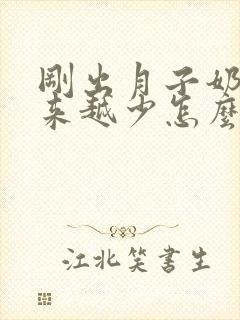 剛出月子奶
来越少怎麼
江北笑書生